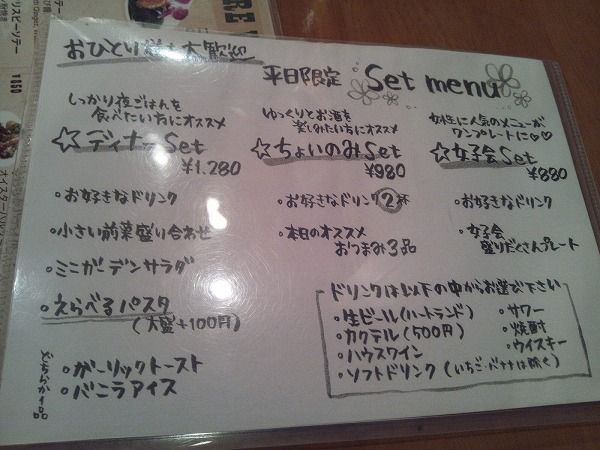 おひとり様も大歓迎
平日限定 Set menu
しっかり夜ごはんを
食べたい方にオススメ
☆ディナーSet
¥1,280
・お好きなドリンク
・小さい前菜盛り合わせ
・ミニガーデンサラダ
・えらべるパスタ
(大盛+100円)
どちらか1品
・ガーリックトースト
・バニラアイス
ゆっくりとお酒を
楽しみたい方にオススメ
☆ちょいのみSet
¥980
・お好きなドリンク2杯
・本日のオススメ
おつまみ3品
女性に人気のメニューが
ワンプレートに♡♡
☆女子会Set
¥880
・お好きなドリンク
・女子会
盛りだくさんプレート
ドリンクは以下の中からお選び下さい
・生ビール(ハートランド)
・カクテル(500円)
・ハウスワイン
・ソフトドリンク(いちご・バナナは除く)
・サワー
・焼酎
・ウイスキー